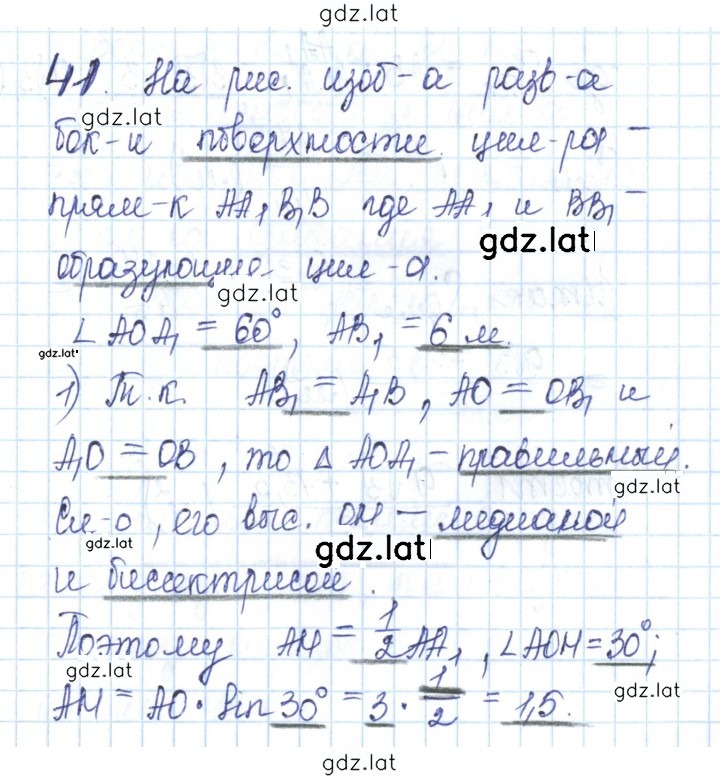 gdz.lat
41. На рис. изоб-а разв-а
gdz.lat
бок-й поверхности цил-ра –
прям-к AA₁B₁B где AA₁ и BB₁ –
gdz.lat
образующие цил-а.
gdz.lat
∠AOA₁ = 60°, AB₁ = 6 м.
gdz.lat
1) Т.к. AB₁ = A₁B, AO = OB₁ и
A₁O = OB, то △ AOA₁ – правильный.
gdz.lat
Сл-о, его выс. OH – медианой
gdz.lat
gdz.lat
и биссектрисой.
Поэтому AH = 1/2 AA₁, ∠AOH = 30°;
gdz.lat
AH = AO · sin 30° = 3 · 1/2 = 1,5.
gdz.lat
gdz.lat